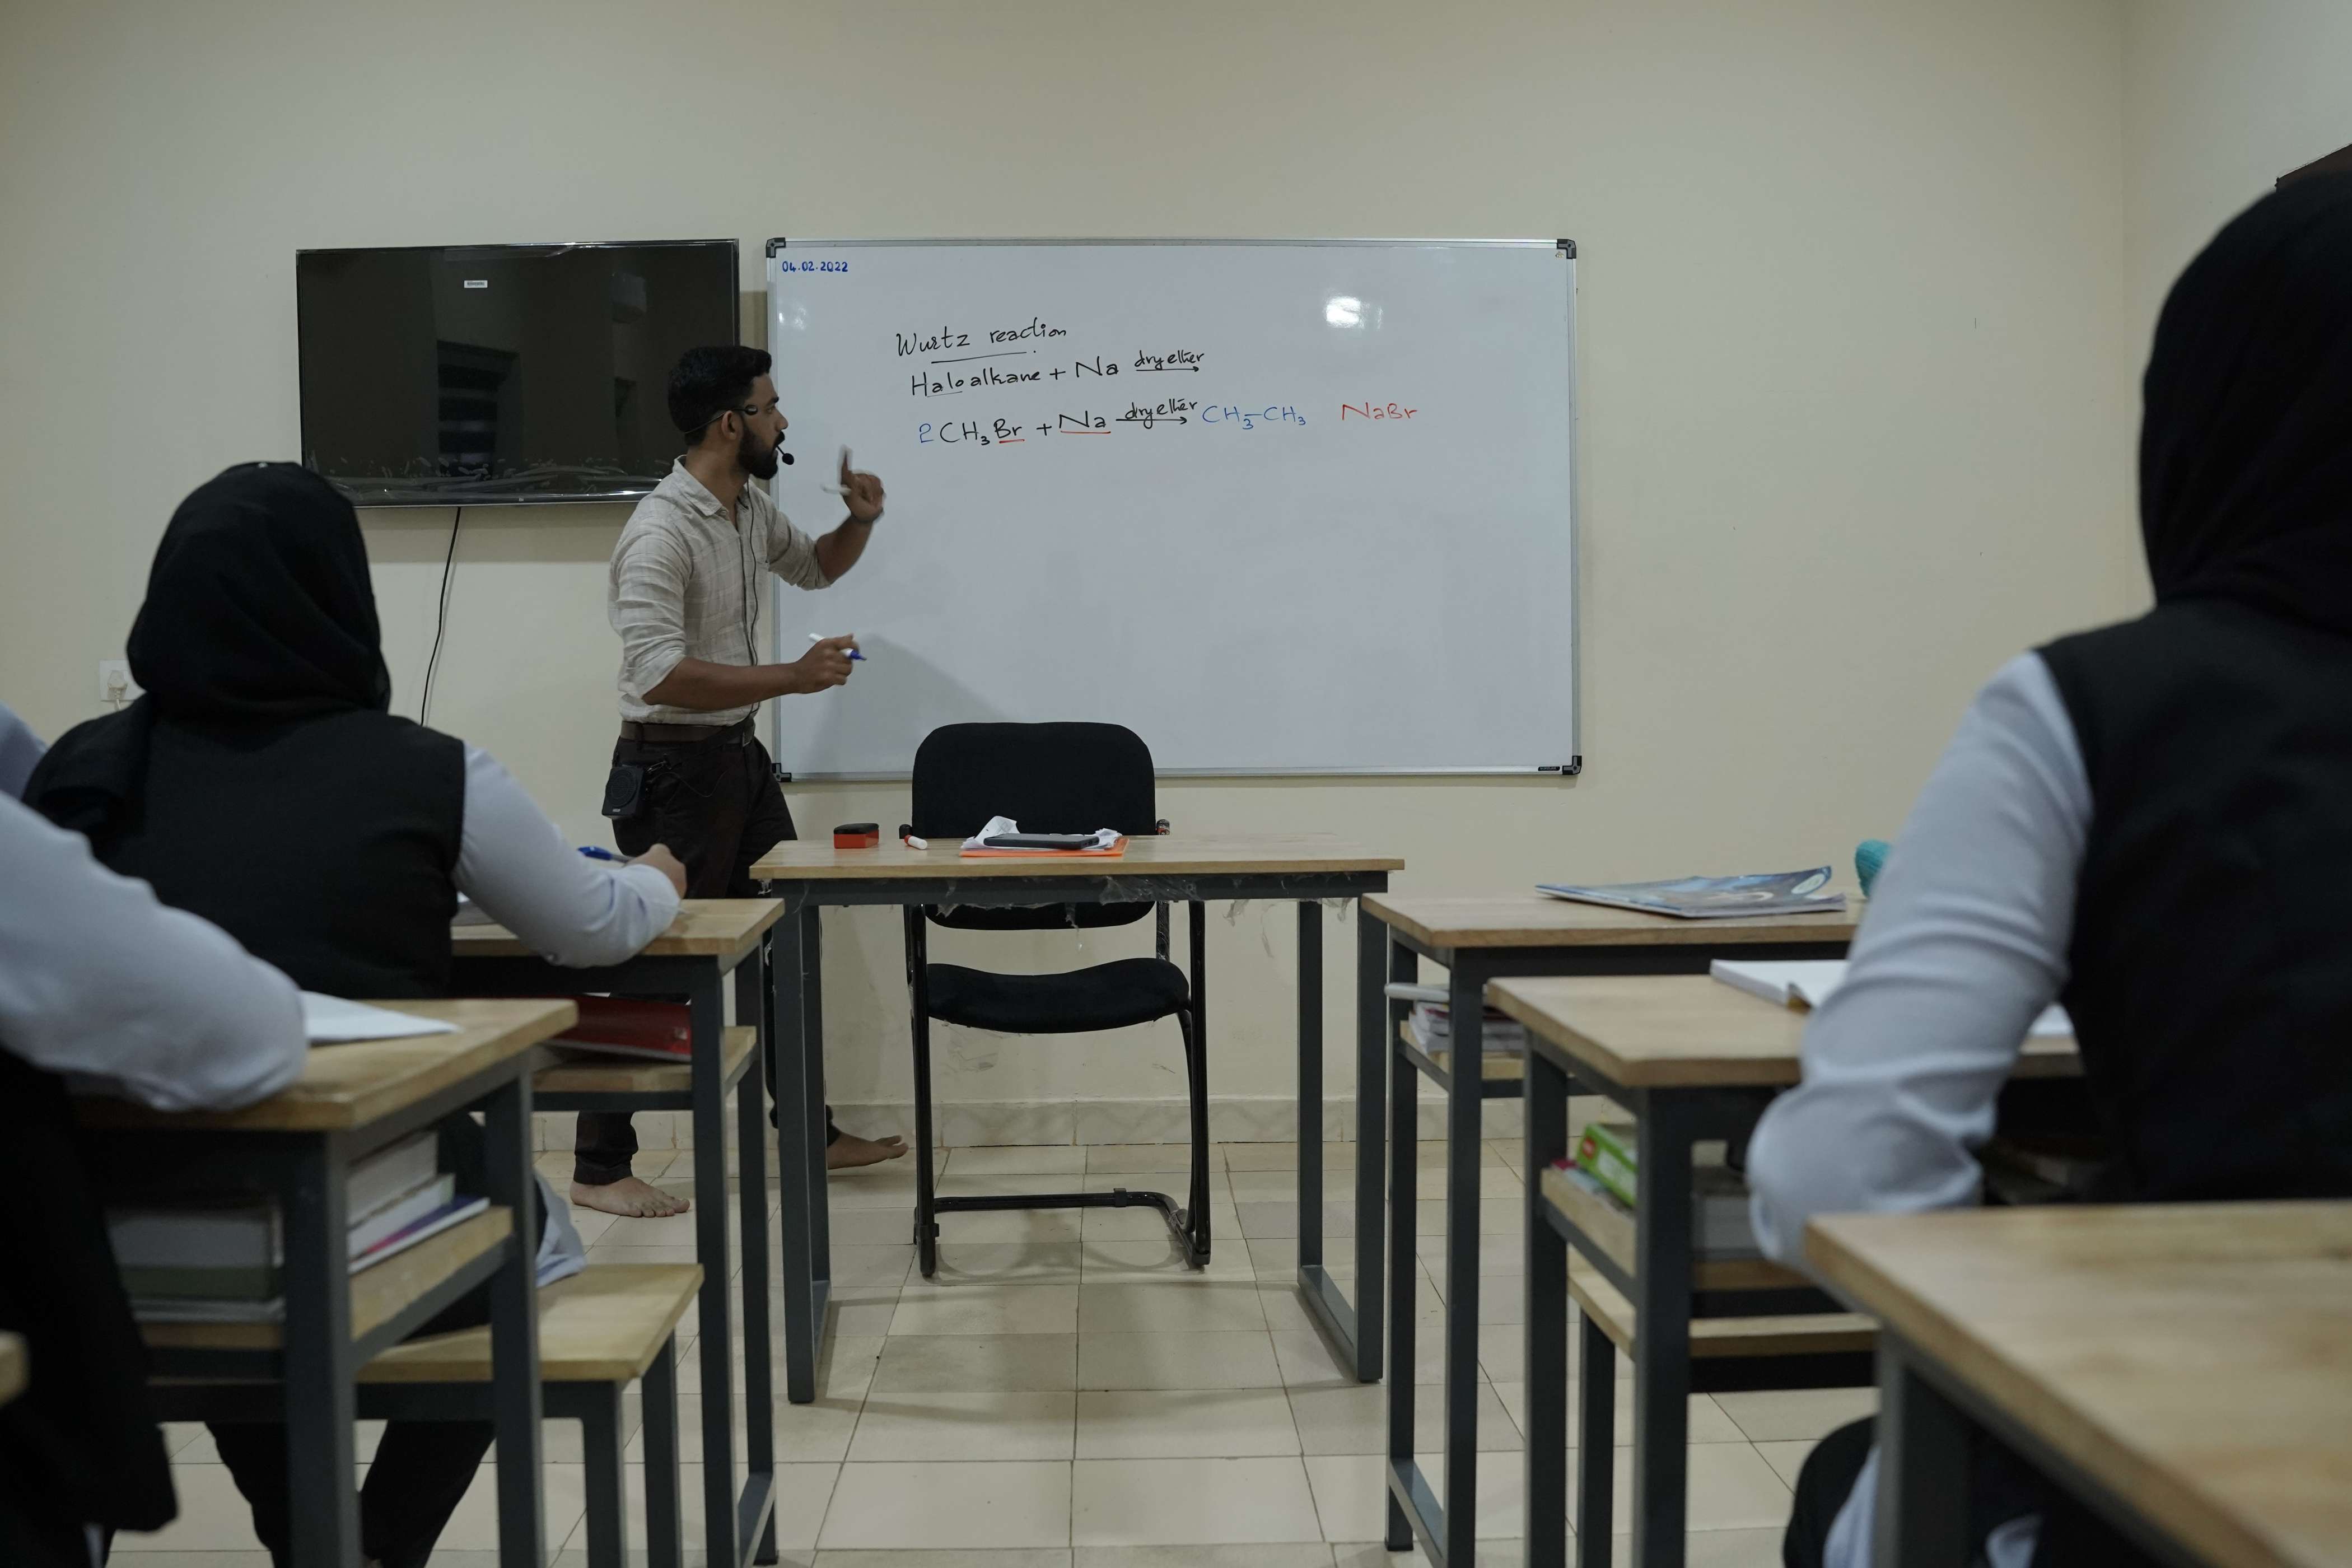 04.02.2022
Wurtz reaction
Haloalkane + Na dry ether →
2CH₃Br + Na dry ether → CH₃-CH₃ NaBr